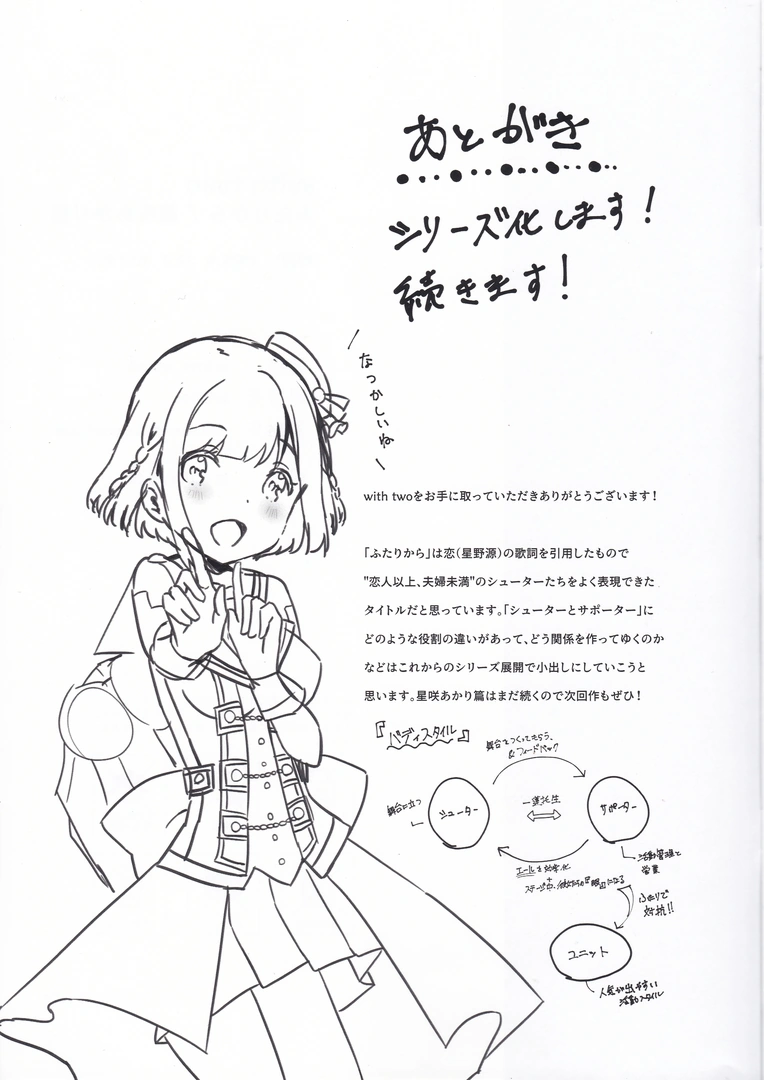 あとがき
シリーズ化します!
続きます!
なつかしいね
with twoをお手に取っていただきありがとうございます!
「ふたりから」は恋(星野源)の歌詞を引用したもので
"恋人以上、夫婦未満"のシューターたちをよく表現できた
タイトルだと思っています。「シューターとサポーター」に
どのような役割の違いがあって、どう関係を作ってゆくのか
などはこれからのシリーズ展開で小出しにしていこうと
思います。星咲あかり篇はまだ続くので次回作もぜひ!
『バディスタイル』
舞台をつくってもらう、
&フィードバック
舞台に立つ
シューター
一蓮托生
サポーター
エールを効率化
+
活動管理と
営業
ふたりで
対抗!!
ユニット
人気が出やすい
活動スタイル